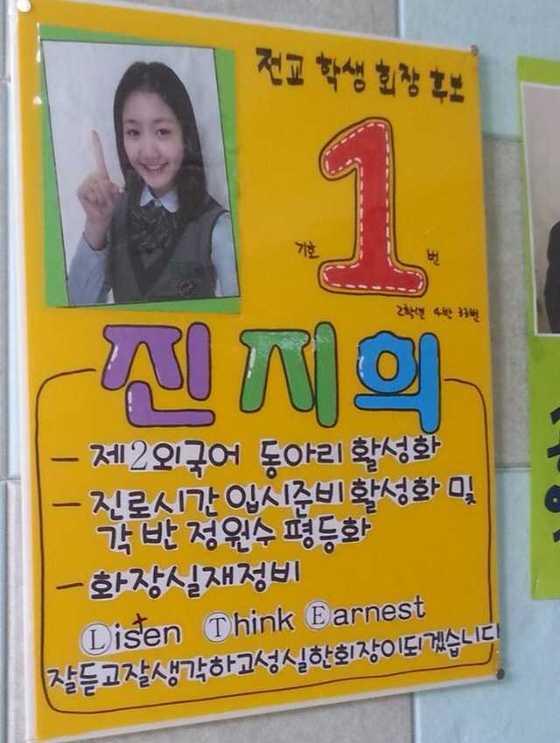 전교 학생 회장 후보
기호 1 번
2학년 4반 33번
진지희
- 제2외국어 동아리 활성화
- 진로시간 입시준비 활성화 및
각 반 정원수 평등화
- 화장실재정비
Listen Think Earnest
잘듣고잘생각하고성실한회장이되겠습니다